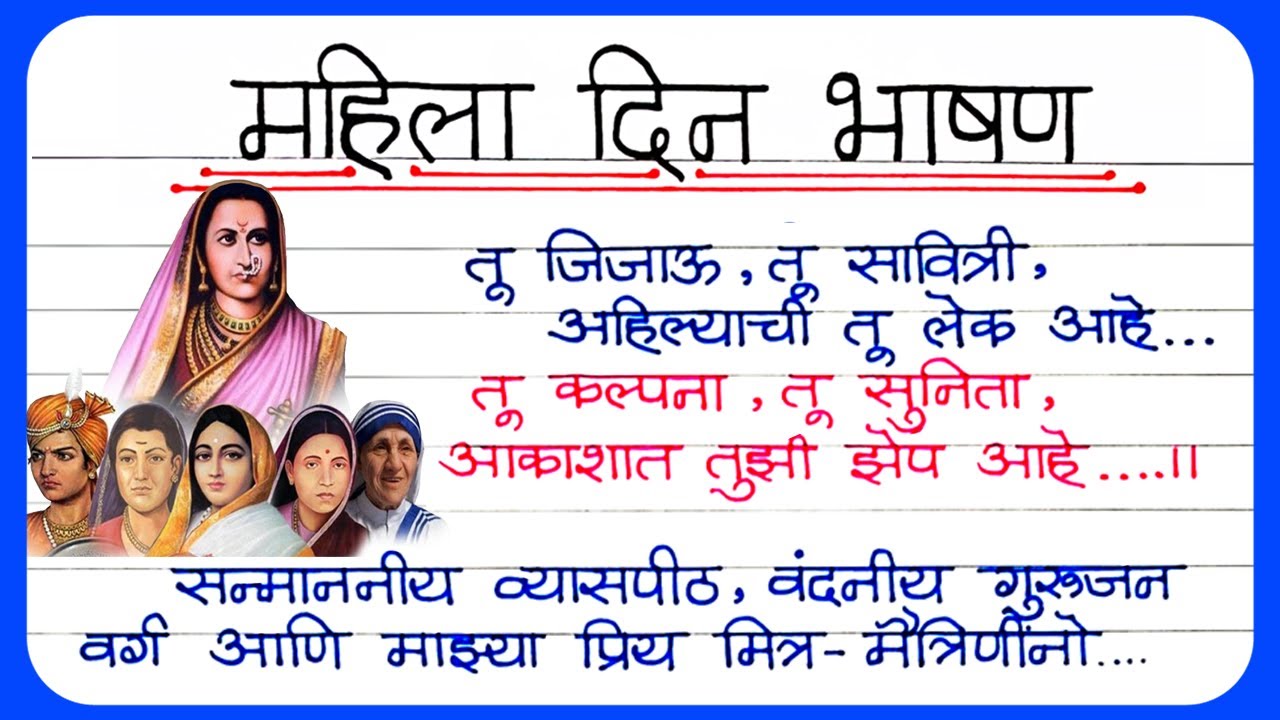 महिला दिन भाषण
तू जिजाऊ, तू सावित्री,
अहिल्याची तू लेक आहे...
तू कल्पना, तू सुनिता,
आकाशात तुझी झेप आहे....।।
सन्माननीय व्यासपीठ, वंदनीय गुरूजन
वर्ग आणि माझ्या प्रिय मित्र-मैत्रिणींनो....